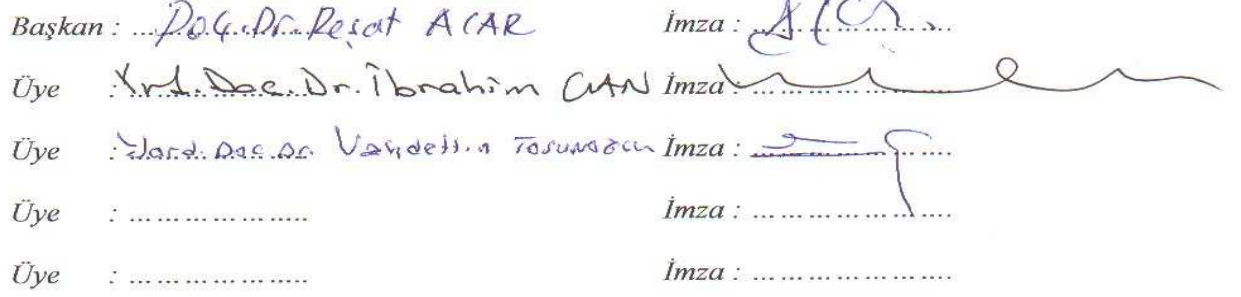 Başkan : ...Doç.Dr. Reşat ACAR İmza : ..................
Üye : Yrd. Doc. Dr. İbrahim CAN İmza ..................
Üye : Yard. Doc. Dr. Vahdettin Tosunoğlu İmza : ..................
Üye : ..................... İmza : ........................
Üye : ..................... İmza : ........................